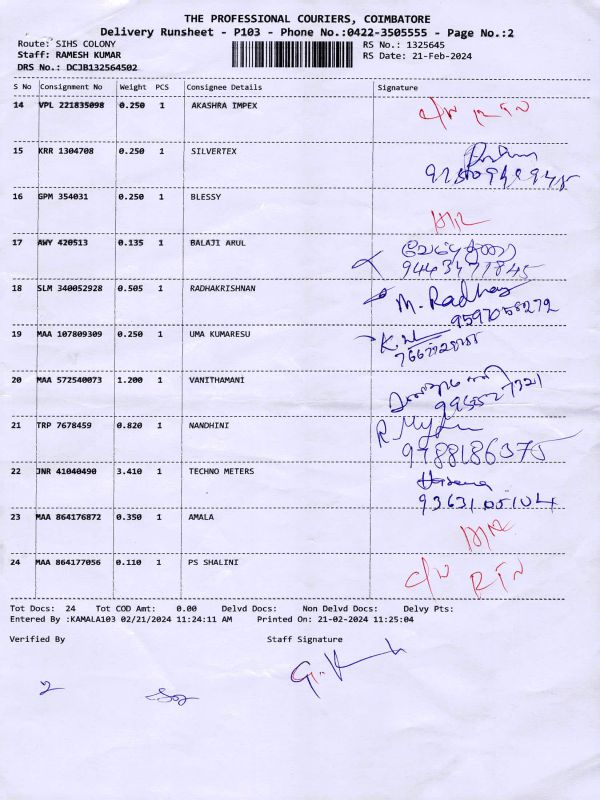 THE PROFESSIONAL COURIERS, COIMBATORE
Delivery Runsheet - P103 - Phone No.:0422-3505555 - Page No.:2
Route: SIHS COLONY RS No.: 1325645
Staff: RAMESH KUMAR RS Date: 21-Feb-2024
DRS No.: DCJB132564502
S No Consignment No Weight PCS Consignee Details Signature
14 VPL 221835098 0.250 1 AKASHRA IMPEX
15 KRR 1304708 0.250 1 SILVERTEX
16 GPM 354031 0.250 1 BLESSY
17 AWY 420513 0.135 1 BALAJI ARUL
9443471845
18 SLM 340052928 0.505 1 RADHAKRISHNAN
M. Radhay
9597058272
19 MAA 107809309 0.250 1 UMA KUMARESU
20 MAA 572540073 1.200 1 VANITHAMANI
21 TRP 7678459 0.820 1 NANDHINI
9788186375
22 JNR 41040490 3.410 1 TECHNO METERS
9363105104
23 MAA 864176872 0.350 1 AMALA
24 MAA 864177056 0.110 1 PS SHALINI
C/N RTN
Tot Docs: 24 Tot COD Amt: 0.00 Delvd Docs: Non Delvd Docs: Delvy Pts:
Entered By :KAMALA103 02/21/2024 11:24:11 AM Printed On: 21-02-2024 11:25:04
Verified By Staff Signature